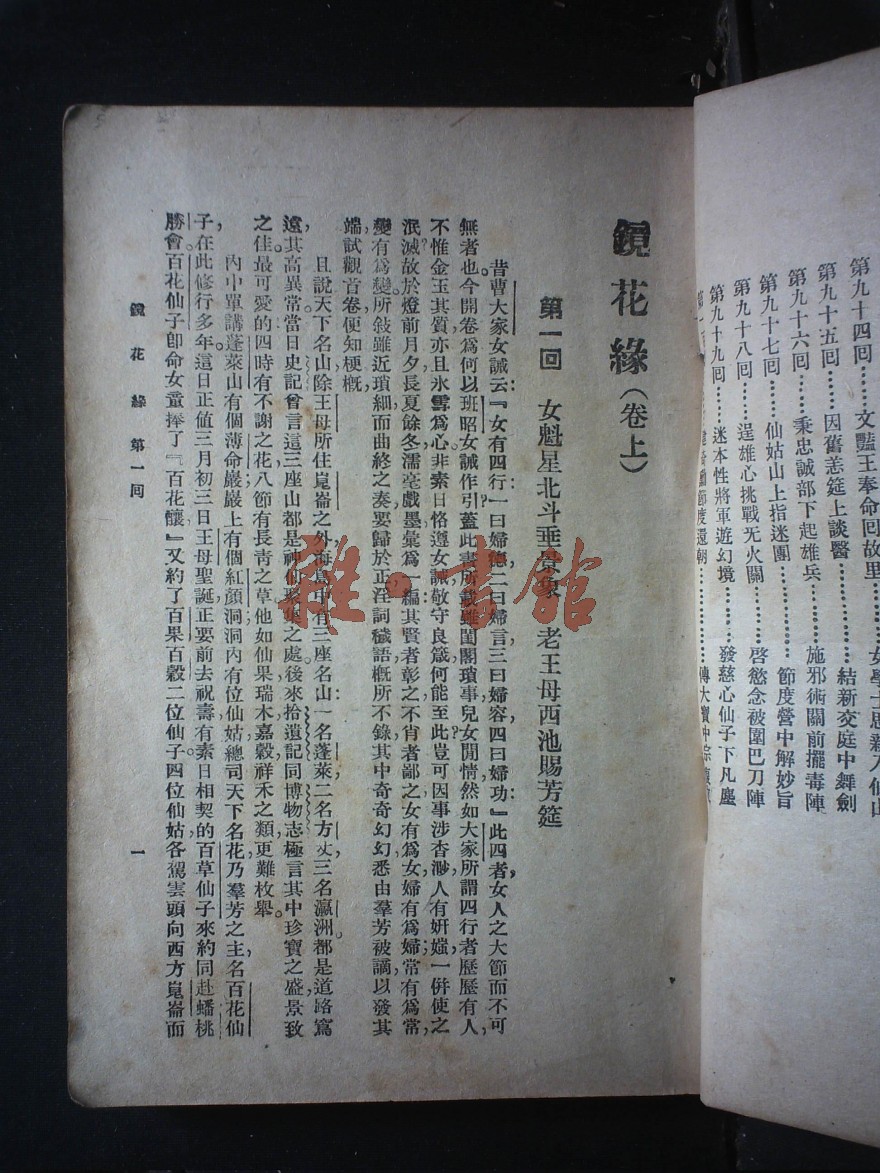 第九十四回……文豔王奉命回故里
第九十五回……因舊恙筵上談醫……結新交庭中舞劍
第九十六回……秉忠誠部下起雄兵……施邪術關前擺毒陣
第九十七回……仙姑山上指迷團……節度營中解妙旨
第九十八回……逞雄心挑戰无火關……啓慾念被圍巴刀陣
第九十九回……迷本性將軍遊幻境……發慈心仙子下凡塵
節度還朝……
鏡花緣(卷上)
第一回 女魁星北斗垂景象 老王母西池賜芳筵
昔曹大家女誡云:『女有四行一曰婦德二曰婦言三曰婦容四曰婦功』此四者女人之大節而不可
無者也。今開卷爲何以班昭女誡作引蓋此書所載雖閨閣瑣事兒女閒情然如大家所謂四行者歷歷有人,
不惟金玉其質亦且氷雪爲心非素日恪遵女誡敬守良箴何能至此豈可因事涉杳渺人有妍媸一併使之
泯滅故於燈前月夕長夏餘冬濡毫戲墨彙爲一編:其賢者彰之不肖者鄙之女有爲女婦有爲婦常有爲常,
變有爲變所敍雖近瑣細而曲終之奏要歸於正淫詞穢語概所不錄其中奇奇幻幻悉由羣芳被謫以發其
端試觀首卷便知梗概。
且說天下名山除王母所住崑崙之外海島中有三座名山:一名蓬萊二名方丈三名瀛洲都是道路窵
遠,其高異常當日史記曾言這三座山都是神仙聚集之處後來拾遺記同博物志極言其中珍寶之盛景致
之佳最可愛的四時有不謝之花八節有長青之草他如仙果瑞木嘉穀祥禾之類更難枚舉。
內中單講蓬萊山有個薄命巖巖上有個紅顏洞洞內有位仙姑總司天下名花乃羣芳之主名百花仙
子,在此修行多年這日正値三月初三日王母聖誕正要前去祝壽有素日相契的百草仙子來約同赴蟠桃
勝會。百花仙子卽命女童捧了『百花釀』又約了百果百穀二位仙子。四位仙姑各駕雲頭向西方崑崙而
鏡花緣 第一回
一
雜·書館